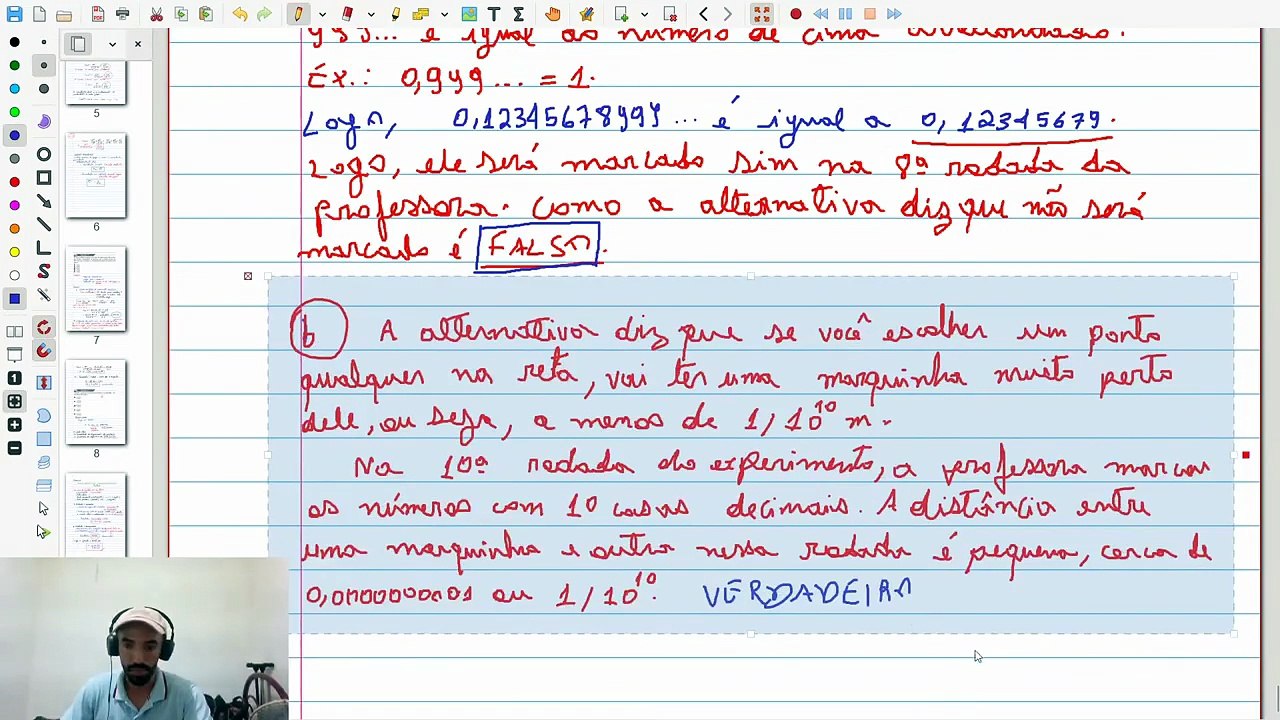 999... é igual ao número de cima
Éx.: 0,999... = 1.
Logo, 0,12345678999... é igual a 0,12345679.
Logo, ele será marcado sim na 8ª rodada da
professora. Como a alternativa diz que não será
marcado é FALSO.
b A alternativa diz que se você escolher um ponto
qualquer na reta, vai ter uma marquinha muito perto
dele, ou seja, a menos de 1/10¹⁰ m.
Na 10ª rodada do experimento, a professora marcar
os números com 10 casas decimais. A distância entre
uma marquinha e outra nessa rodada é pequena, cerca de
0,0000000001 ou 1/10¹⁰. VERDADEIRA
5
6
7
8